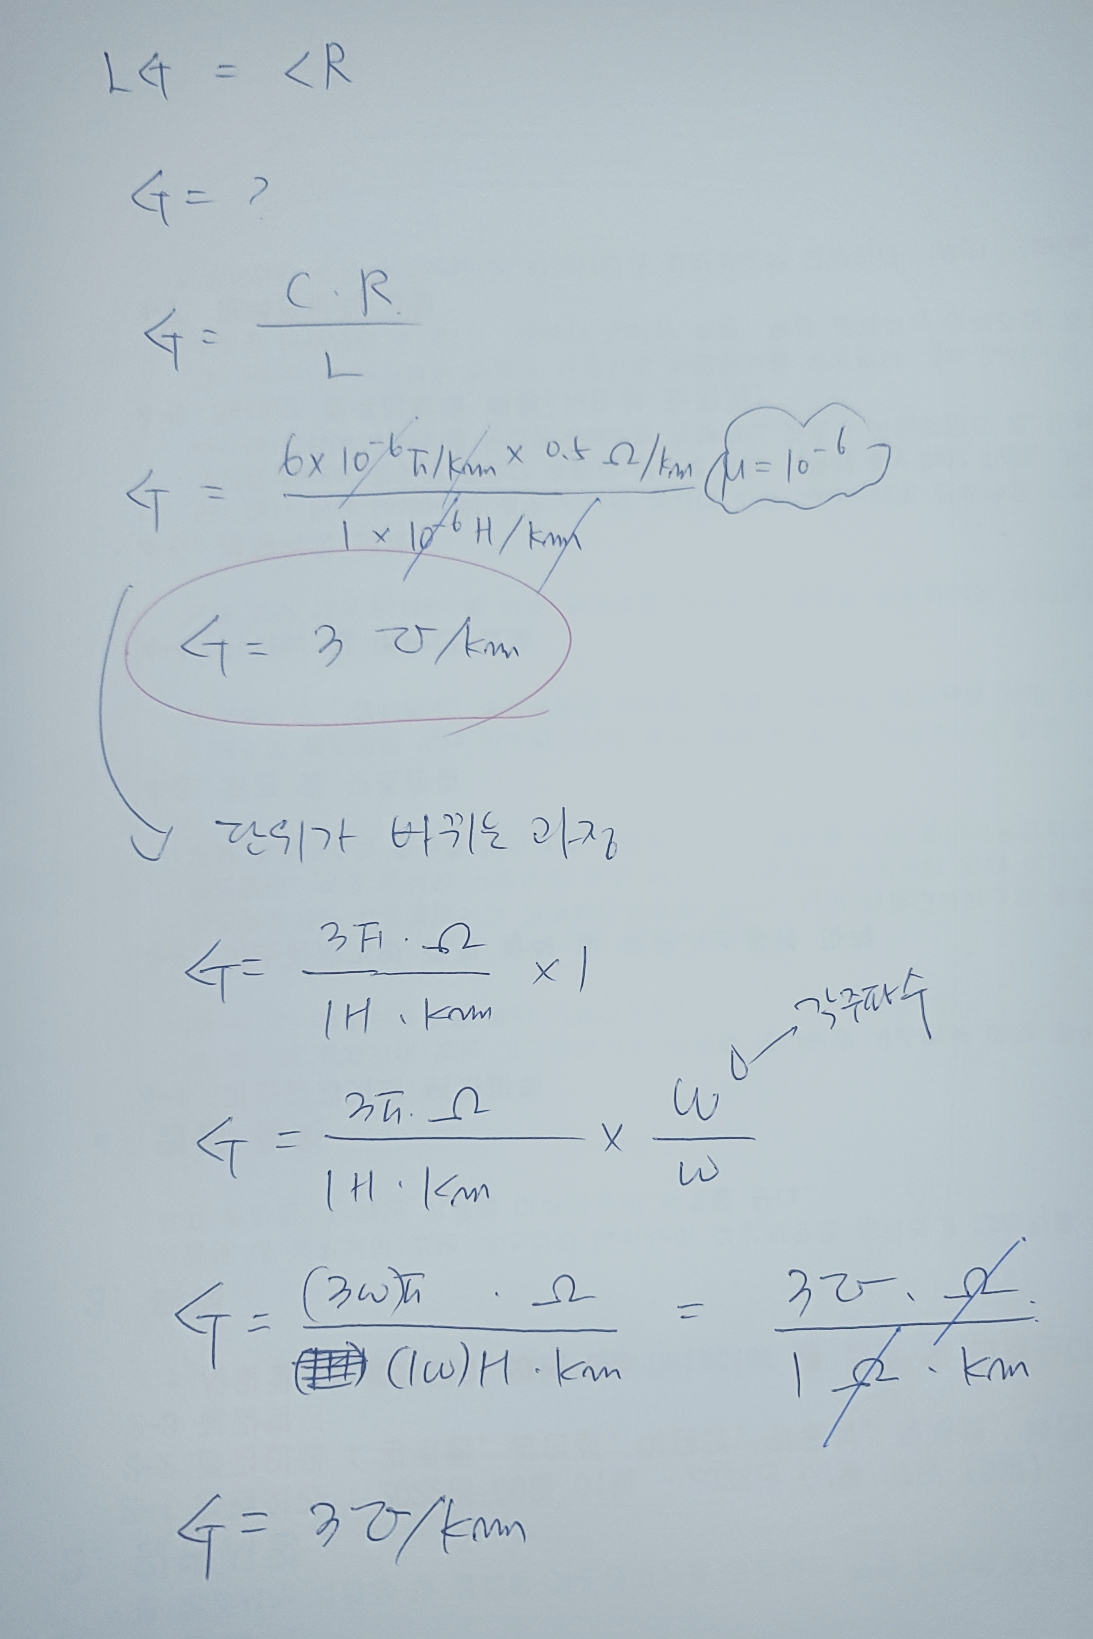 LG = CR
G = ?
G = C·R / L
G = 6×10⁻⁶ F/km × 0.5 Ω/km / 1×10⁻⁶ H/km μ=10⁻⁶
G = 3 ℧/km
단위가 바뀌는 과정
G = 3F·Ω / 1H·km × 1
각주파수
G = 3F·Ω / 1H·km × ω/ω
G = (3ω)F·Ω / (1ω)H·km = 3℧·Ω / 1Ω·km
G = 3℧/km